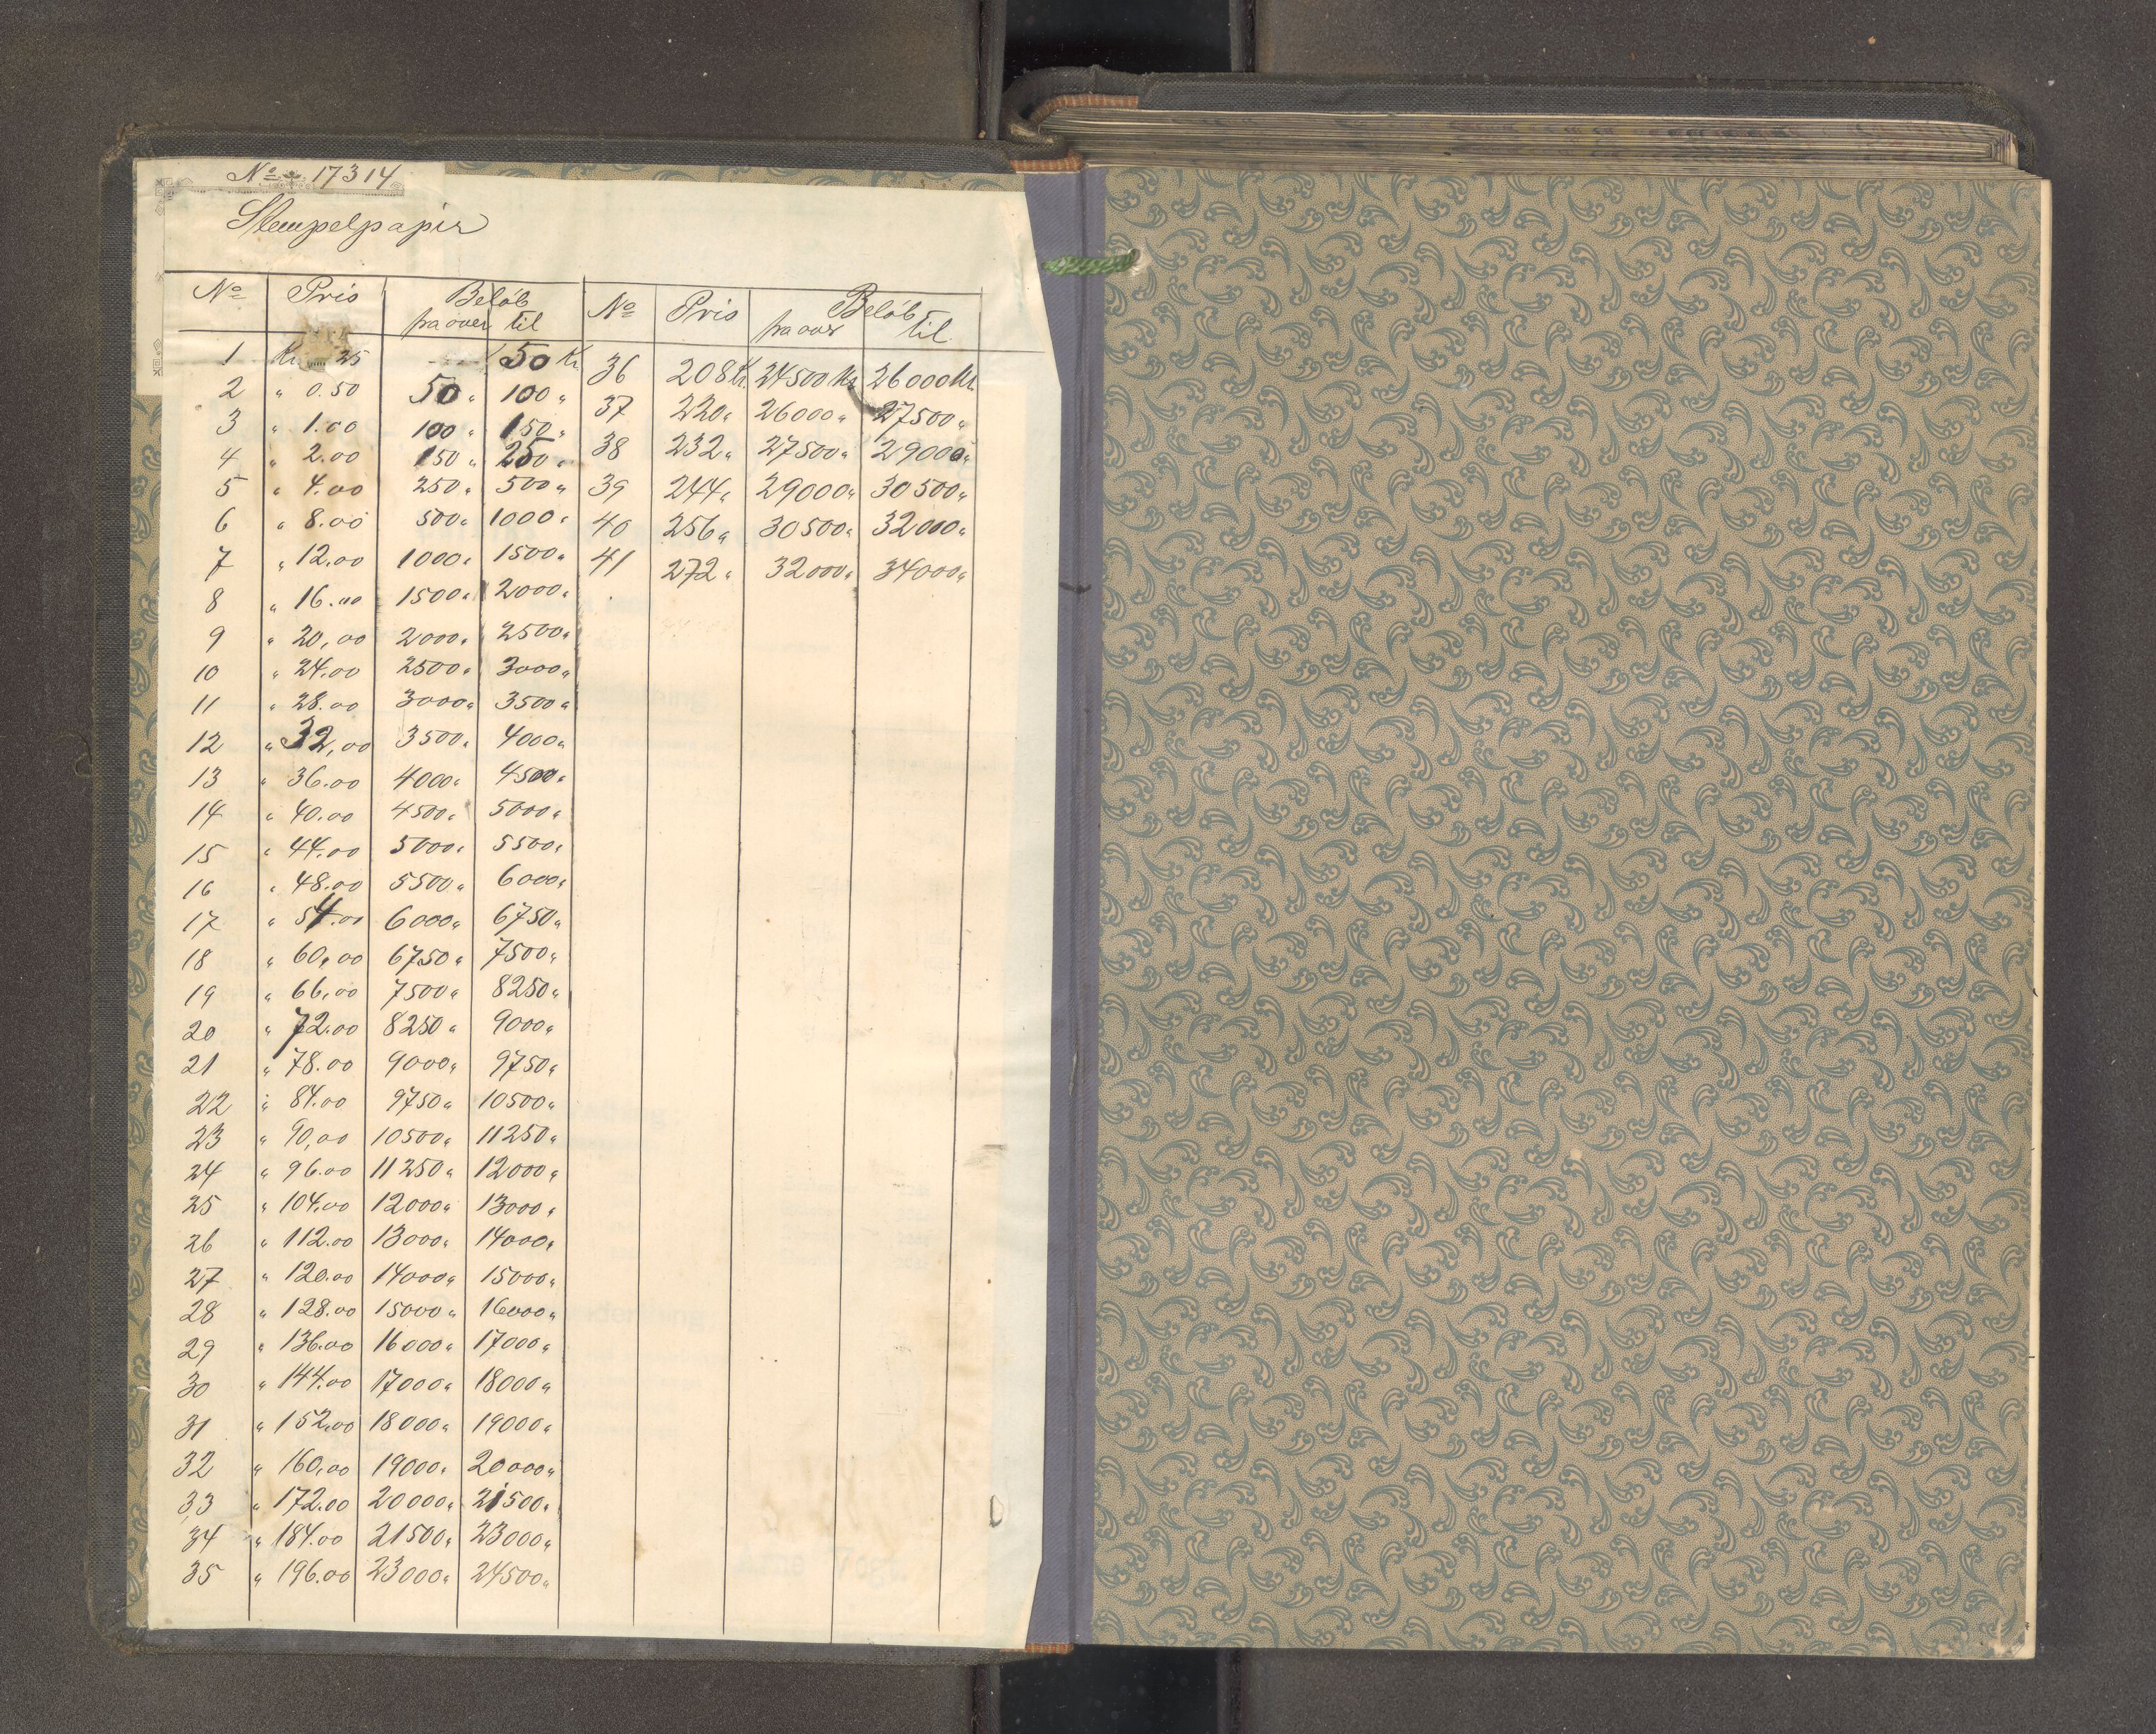 No 17314
Stempelpapir
No Pris Beløb fra over til
1 Kr. 25 50 Kr
2 " 0.50 50 " 100 "
3 " 1.00 100 " 150 "
4 " 2.00 150 " 250 "
5 " 4.00 250 " 500 "
6 " 8.00 500 " 1000 "
7 " 12.00 1000 " 1500 "
8 " 16.00 1500 " 2000 "
9 " 20,00 2000 " 2500 "
10 " 24.00 2500 " 3000 "
11 " 28.00 3000 " 3500 "
12 " 32,00 3500 " 4000 "
13 " 36.00 4000 " 4500 "
14 " 40.00 4500 " 5000 "
15 " 44.00 5000 " 5500 "
16 " 48.00 5500 " 6000 "
17 " 54.00 6000 " 6750 "
18 " 60,00 6750 " 7500 "
19 " 66,00 7500 " 8250 "
20 " 72.00 8250 " 9000 "
21 " 78.00 9000 " 9750 "
22 " 84.00 9750 " 10500 "
23 " 90,00 10500 " 11250 "
24 " 96.00 11250 " 12000 "
25 " 104.00 12000 " 13000 "
26 " 112.00 13000 " 14000 "
27 " 120.00 14000 " 15000 "
28 " 128.00 15000 " 16000 "
29 " 136.00 16000 " 17000 "
30 " 144.00 17000 " 18000 "
31 " 152.00 18000 " 19000 "
32 " 160,00 19000 " 20000 "
33 " 172.00 20000 " 21500 "
34 " 184.00 21500 " 23000 "
35 " 196.00 23000 " 24500 "
No Pris Beløb fra over til
36 208 Kr. 24500 Kr 26000 Kr
37 220 " 26000 " 27500 "
38 232 " 27500 " 29000 "
39 244 " 29000 " 30500 "
40 256 " 30500 " 32000 "
41 272 " 32000 " 34000 "